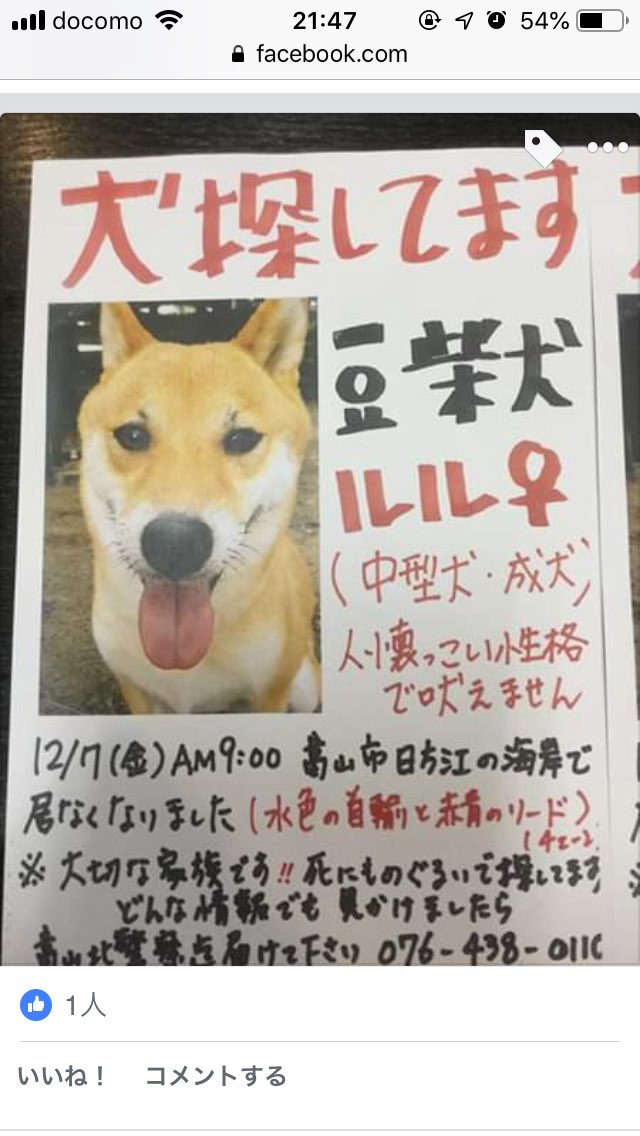 docomo 21:47 54%
facebook.com
犬探してます
豆柴犬
ルル♀
(中型犬・成犬)
人懐っこい性格
で吠えません
12/7(金)AM9:00 富山市日方江の海岸で
居なくなりました(水色の首輪と赤青のリード)
※大切な家族です!! 死にものぐるいで探してます
どんな情報でも見かけましたら
富山北警察
届けて下さい 076-438-0110
1人
いいね! コメントする